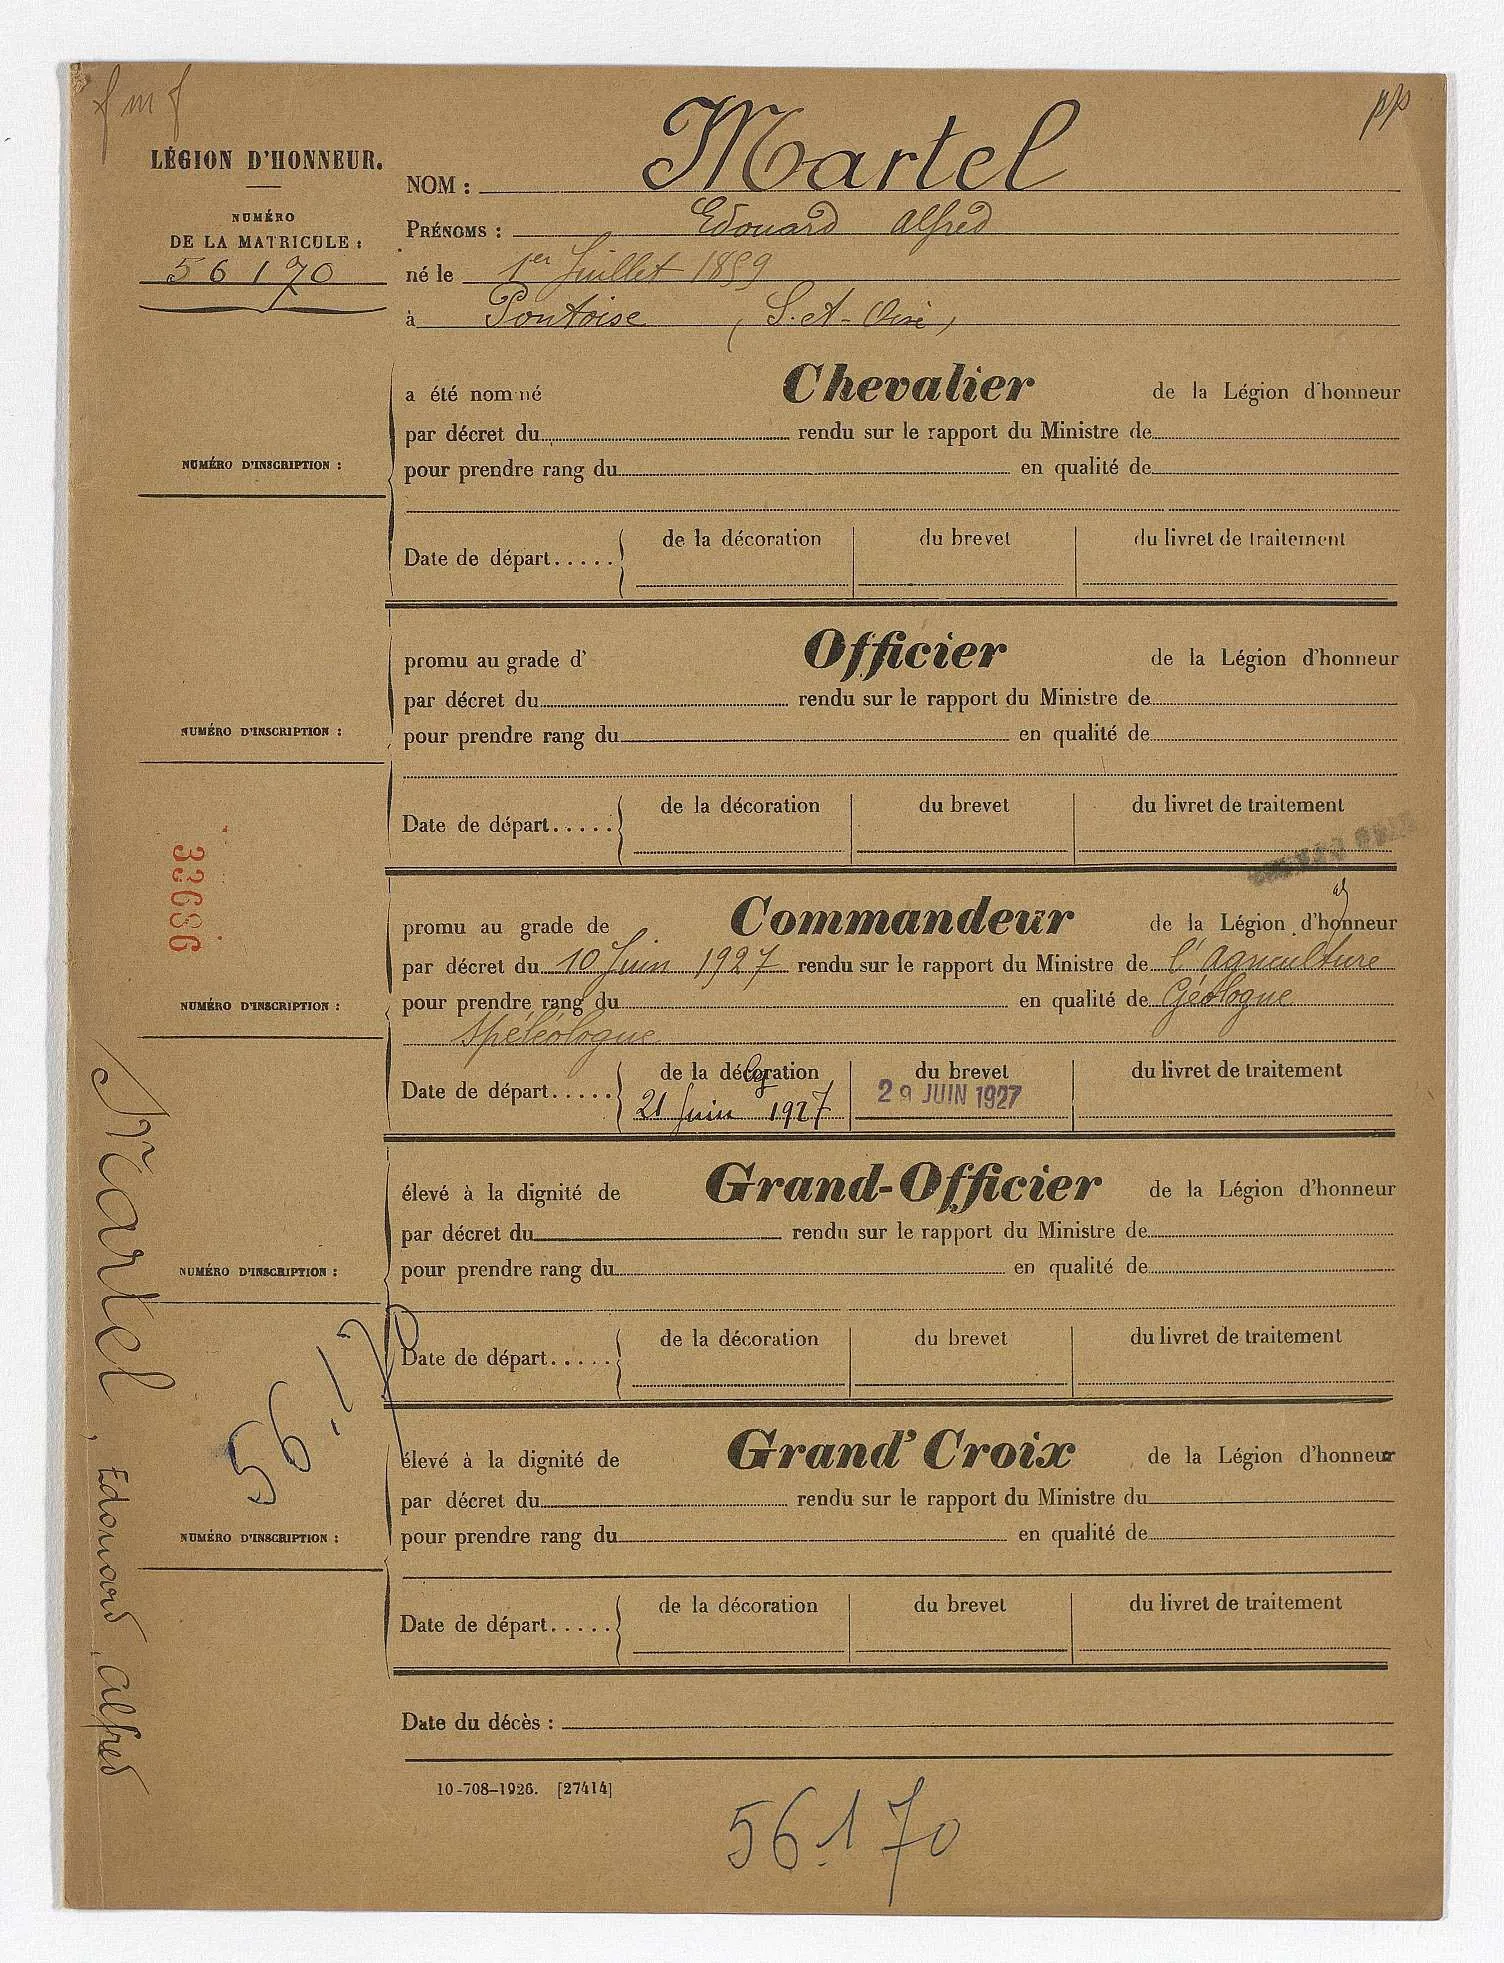 fmf
pp
LÉGION D'HONNEUR.
NUMÉRO
DE LA MATRICULE :
56170
NOM : Martel
PRÉNOMS : Edouard Alfred
né le 1er Juillet 1859
à Pontoise (S.-et-Oise)
a été nommé Chevalier de la Légion d'honneur
par décret du rendu sur le rapport du Ministre de
NUMÉRO D'INSCRIPTION :
pour prendre rang du en qualité de
de la décoration du brevet du livret de traitement
Date de départ.....
promu au grade d' Officier de la Légion d'honneur
par décret du rendu sur le rapport du Ministre de
NUMÉRO D'INSCRIPTION :
pour prendre rang du en qualité de
de la décoration du brevet du livret de traitement
Date de départ.....
33686
promu au grade de Commandeur de la Légion d'honneur
par décret du 10 Juin 1927 rendu sur le rapport du Ministre de l'Agriculture
NUMÉRO D'INSCRIPTION :
pour prendre rang du en qualité de Géologue
spéléologue
de la décoration du brevet du livret de traitement
Date de départ..... 21 Juin 1927 29 JUIN 1927
élevé à la dignité de Grand-Officier de la Légion d'honneur
par décret du rendu sur le rapport du Ministre de
NUMÉRO D'INSCRIPTION :
pour prendre rang du en qualité de
de la décoration du brevet du livret de traitement
Date de départ.....
56.170
élevé à la dignité de Grand'Croix de la Légion d'honneur
par décret du rendu sur le rapport du Ministre du
NUMÉRO D'INSCRIPTION :
pour prendre rang du en qualité de
de la décoration du brevet du livret de traitement
Date de départ.....
Date du décès :
10-708-1926. [27414]
56.170
Martel, Edouard, Alfred